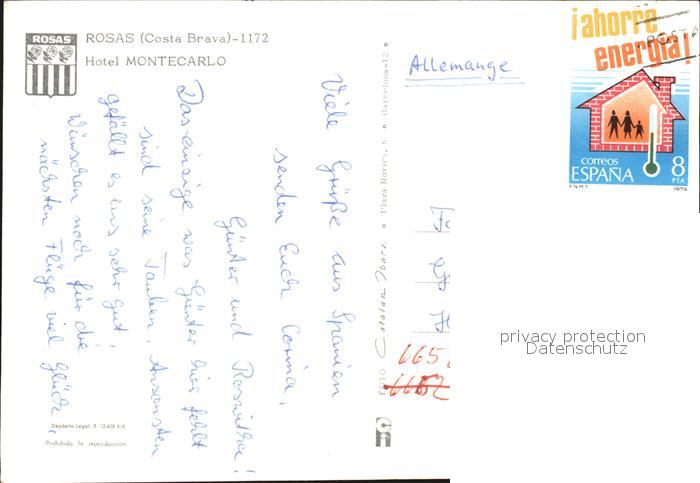 ROSAS
ROSAS (Costa Brava)-1172
Hotel MONTECARLO
Viele Grüße aus Spanien
senden Euch Corina,
Günter und Roswitha!
Das einzige was Günter hier fehlt
sind seine Tauben. Ansonsten
gefällt es uns sehr gut!
Wünschen noch für die
nächsten Flüge viel Glück.
Depósito Legal, B. 12.408-XIX
Prohibida la reproducción
FOTO Catalan Ibarz Plaza Rovira, 6 Barcelona-12
Allemange
¡ahorre
energía!
POSTA
correos
ESPAÑA
8
PTA
F.N.M.T.
1979
665
6652
privacy protection
Datenschutz